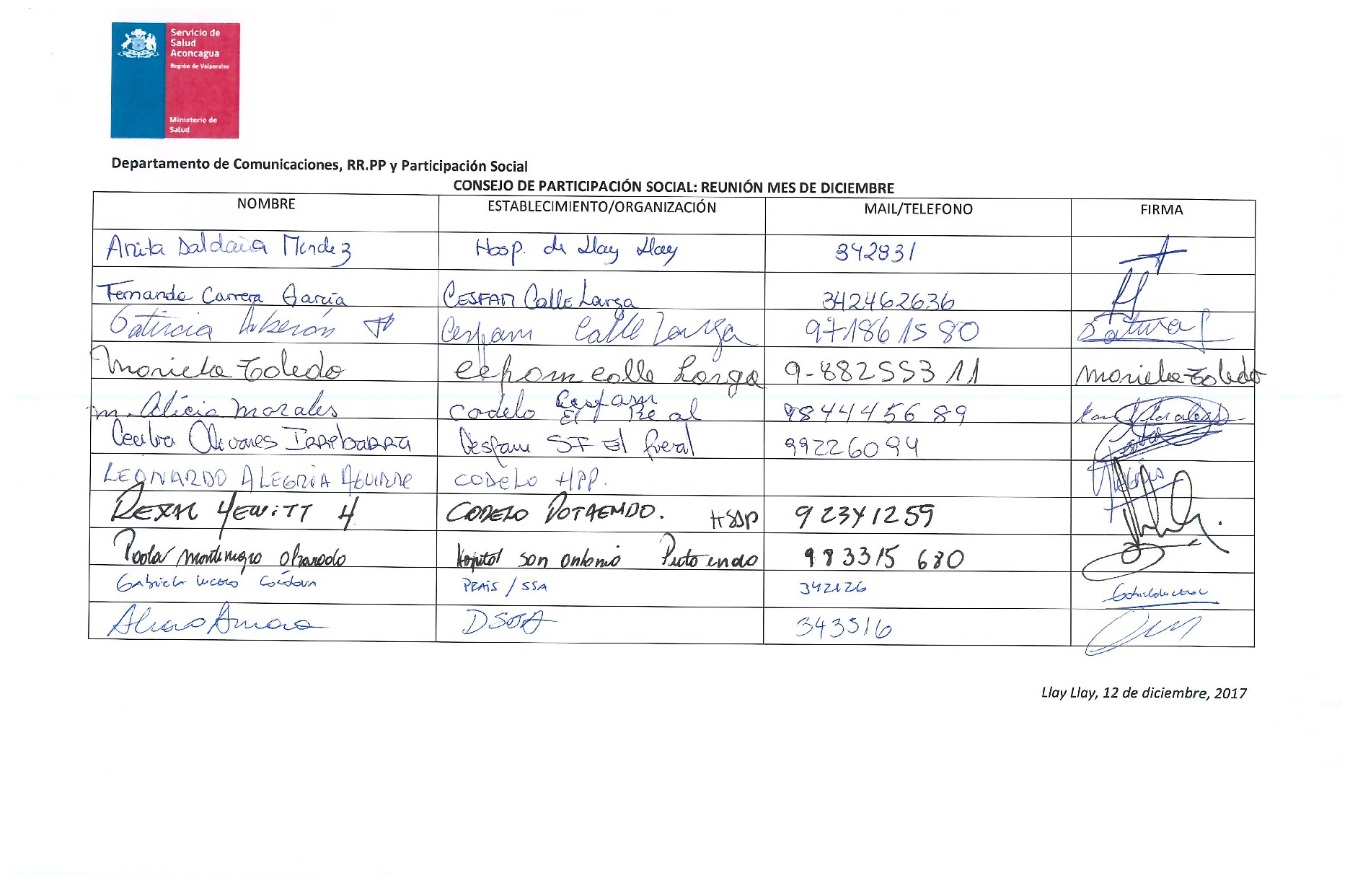 Servicio de
Salud
Aconcagua
Región de Valparaíso
Ministerio de
Salud
Departamento de Comunicaciones, RR.PP y Participación Social
CONSEJO DE PARTICIPACIÓN SOCIAL: REUNIÓN MES DE DICIEMBRE
NOMBRE ESTABLECIMIENTO/ORGANIZACIÓN MAIL/TELEFONO FIRMA
Anita Saldaña Mendez Hosp. de Llay Llay 342931
Fernanda Carrera García CESFAM Calle Larga 342462636
Patricia Cesfam Calle Larga 971861580
Mariela Toledo calle Larga 9-88255311 Mariela Toledo
M. Alicia Morales Codelo Cesfam El Real 984445689
Olivares Cesfam SF El 99226094
LEONARDO ALEGRIA AGUIRRE CODELO HPP.
HEWITT H CODELO PUTAENDO. HSAP 92341259
Paola Montenegro Hospital San Antonio Putaendo 983315 680
Gabriela PRAIS / SSA 342126
Alvaro 343516
Llay Llay, 12 de diciembre, 2017